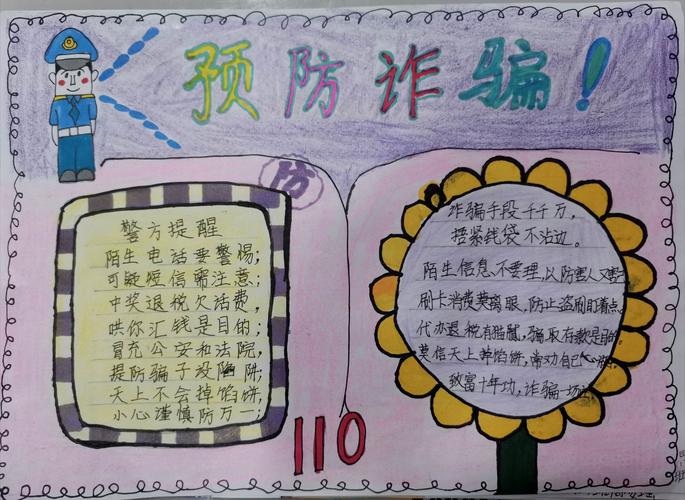 预防诈骗！
防
警方提醒
陌生电话要警惕；
可疑短信需注意；
中奖退税欠话费，
哄你汇钱是目的；
冒充公安和法院，
提防骗子设陷阱；
天上不会掉馅饼，
小心谨慎防万一；
诈骗手段千千万，
捂紧钱袋不沾边。
陌生信息不要理，以防害人又害
刷卡消费莫离眼，防止盗刷盯着点
代办退税有猫腻，骗取存款是目的
莫信天上掉馅饼，常劝自己
致富十年功，诈骗一场
110